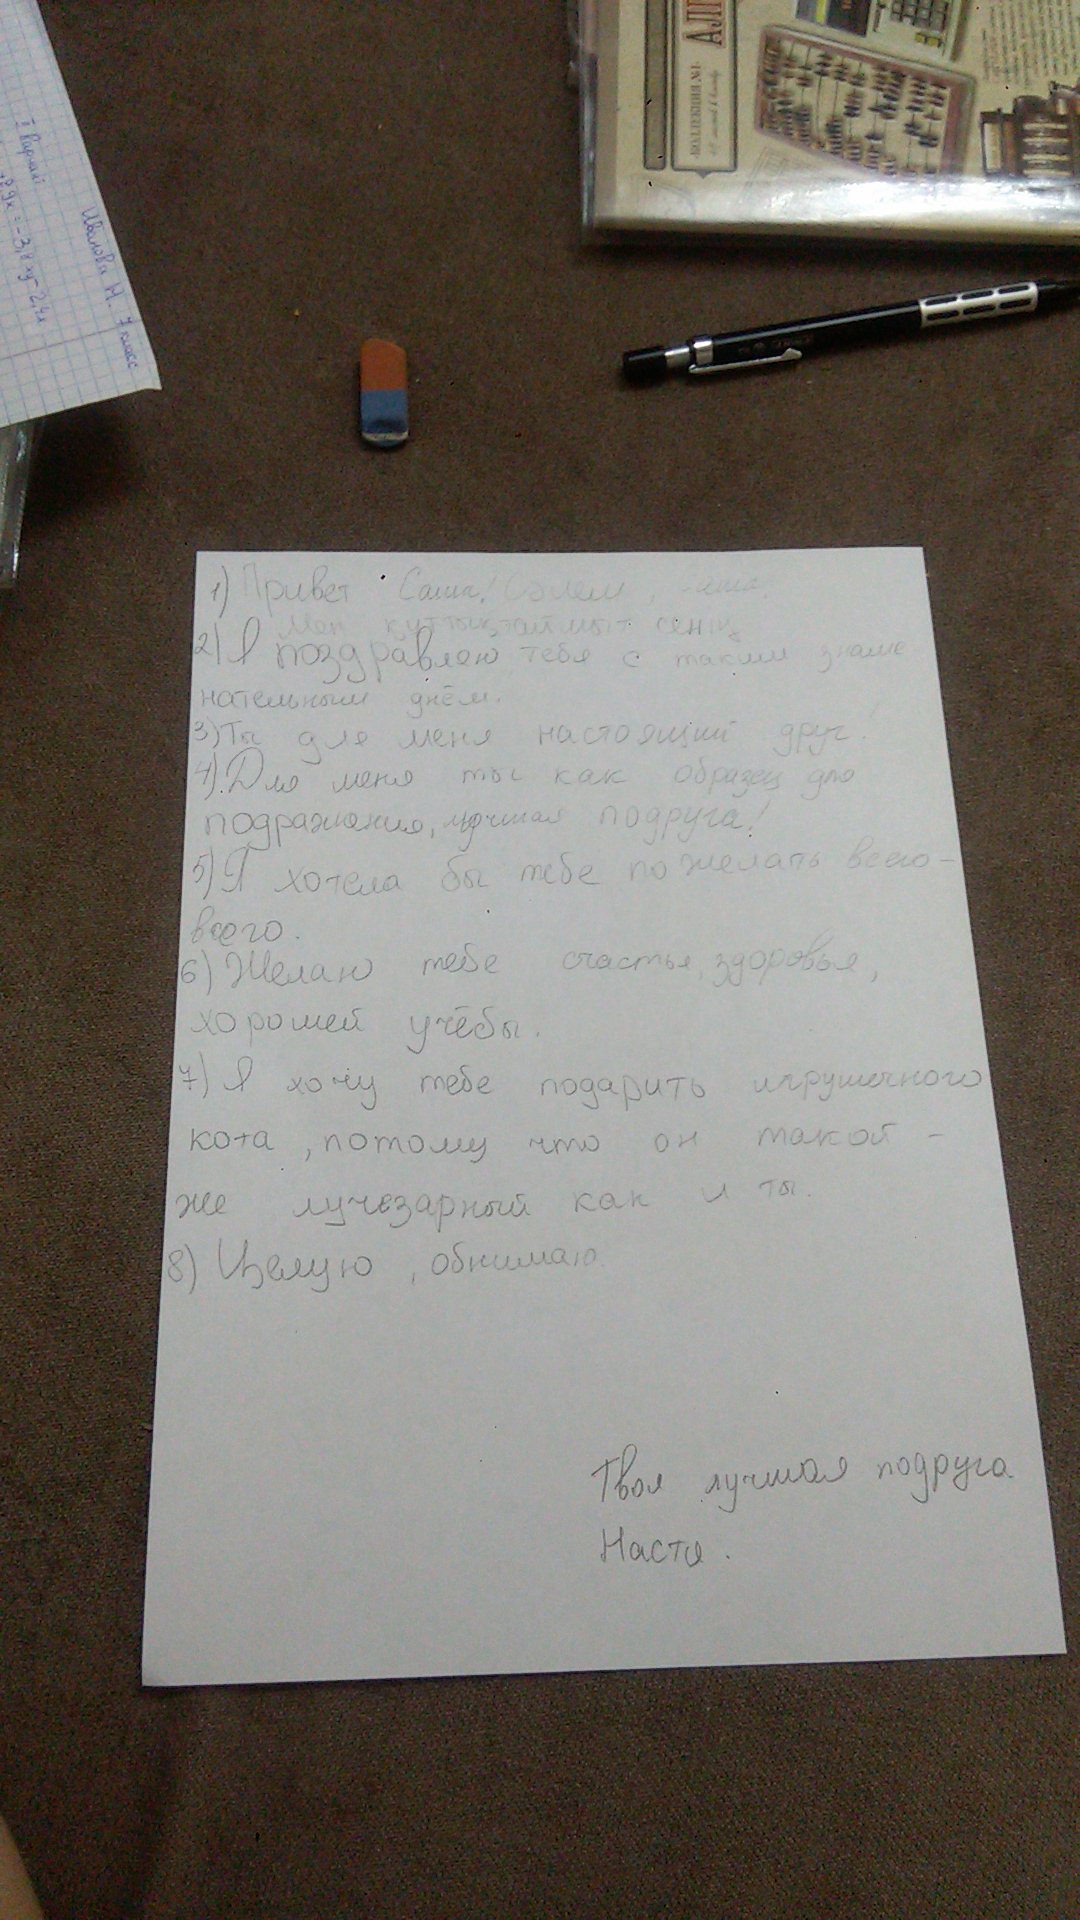 АЛГ
·КОЛЛЕКЦИЯ №1·
I вариант
Иванова Н. 7 класс
1) Привет Саша! Сәлем,
Мен
2) Я поздравляю тебя с таким знаме
нательным днём.
3) Ты для меня настоящий друг!
4). Для меня ты как образец для
подражания, лучшая подруга!
5) Я хотела бы тебе пожелать всего-
всего.
6) Желаю тебе счастья, здоровья,
хорошей учёбы.
7) Я хочу тебе подарить игрушечного
кота, потому что он такой -
же лучезарный как и ты.
8) Целую, обнимаю.
Твоя лучшая подруга
Настя.